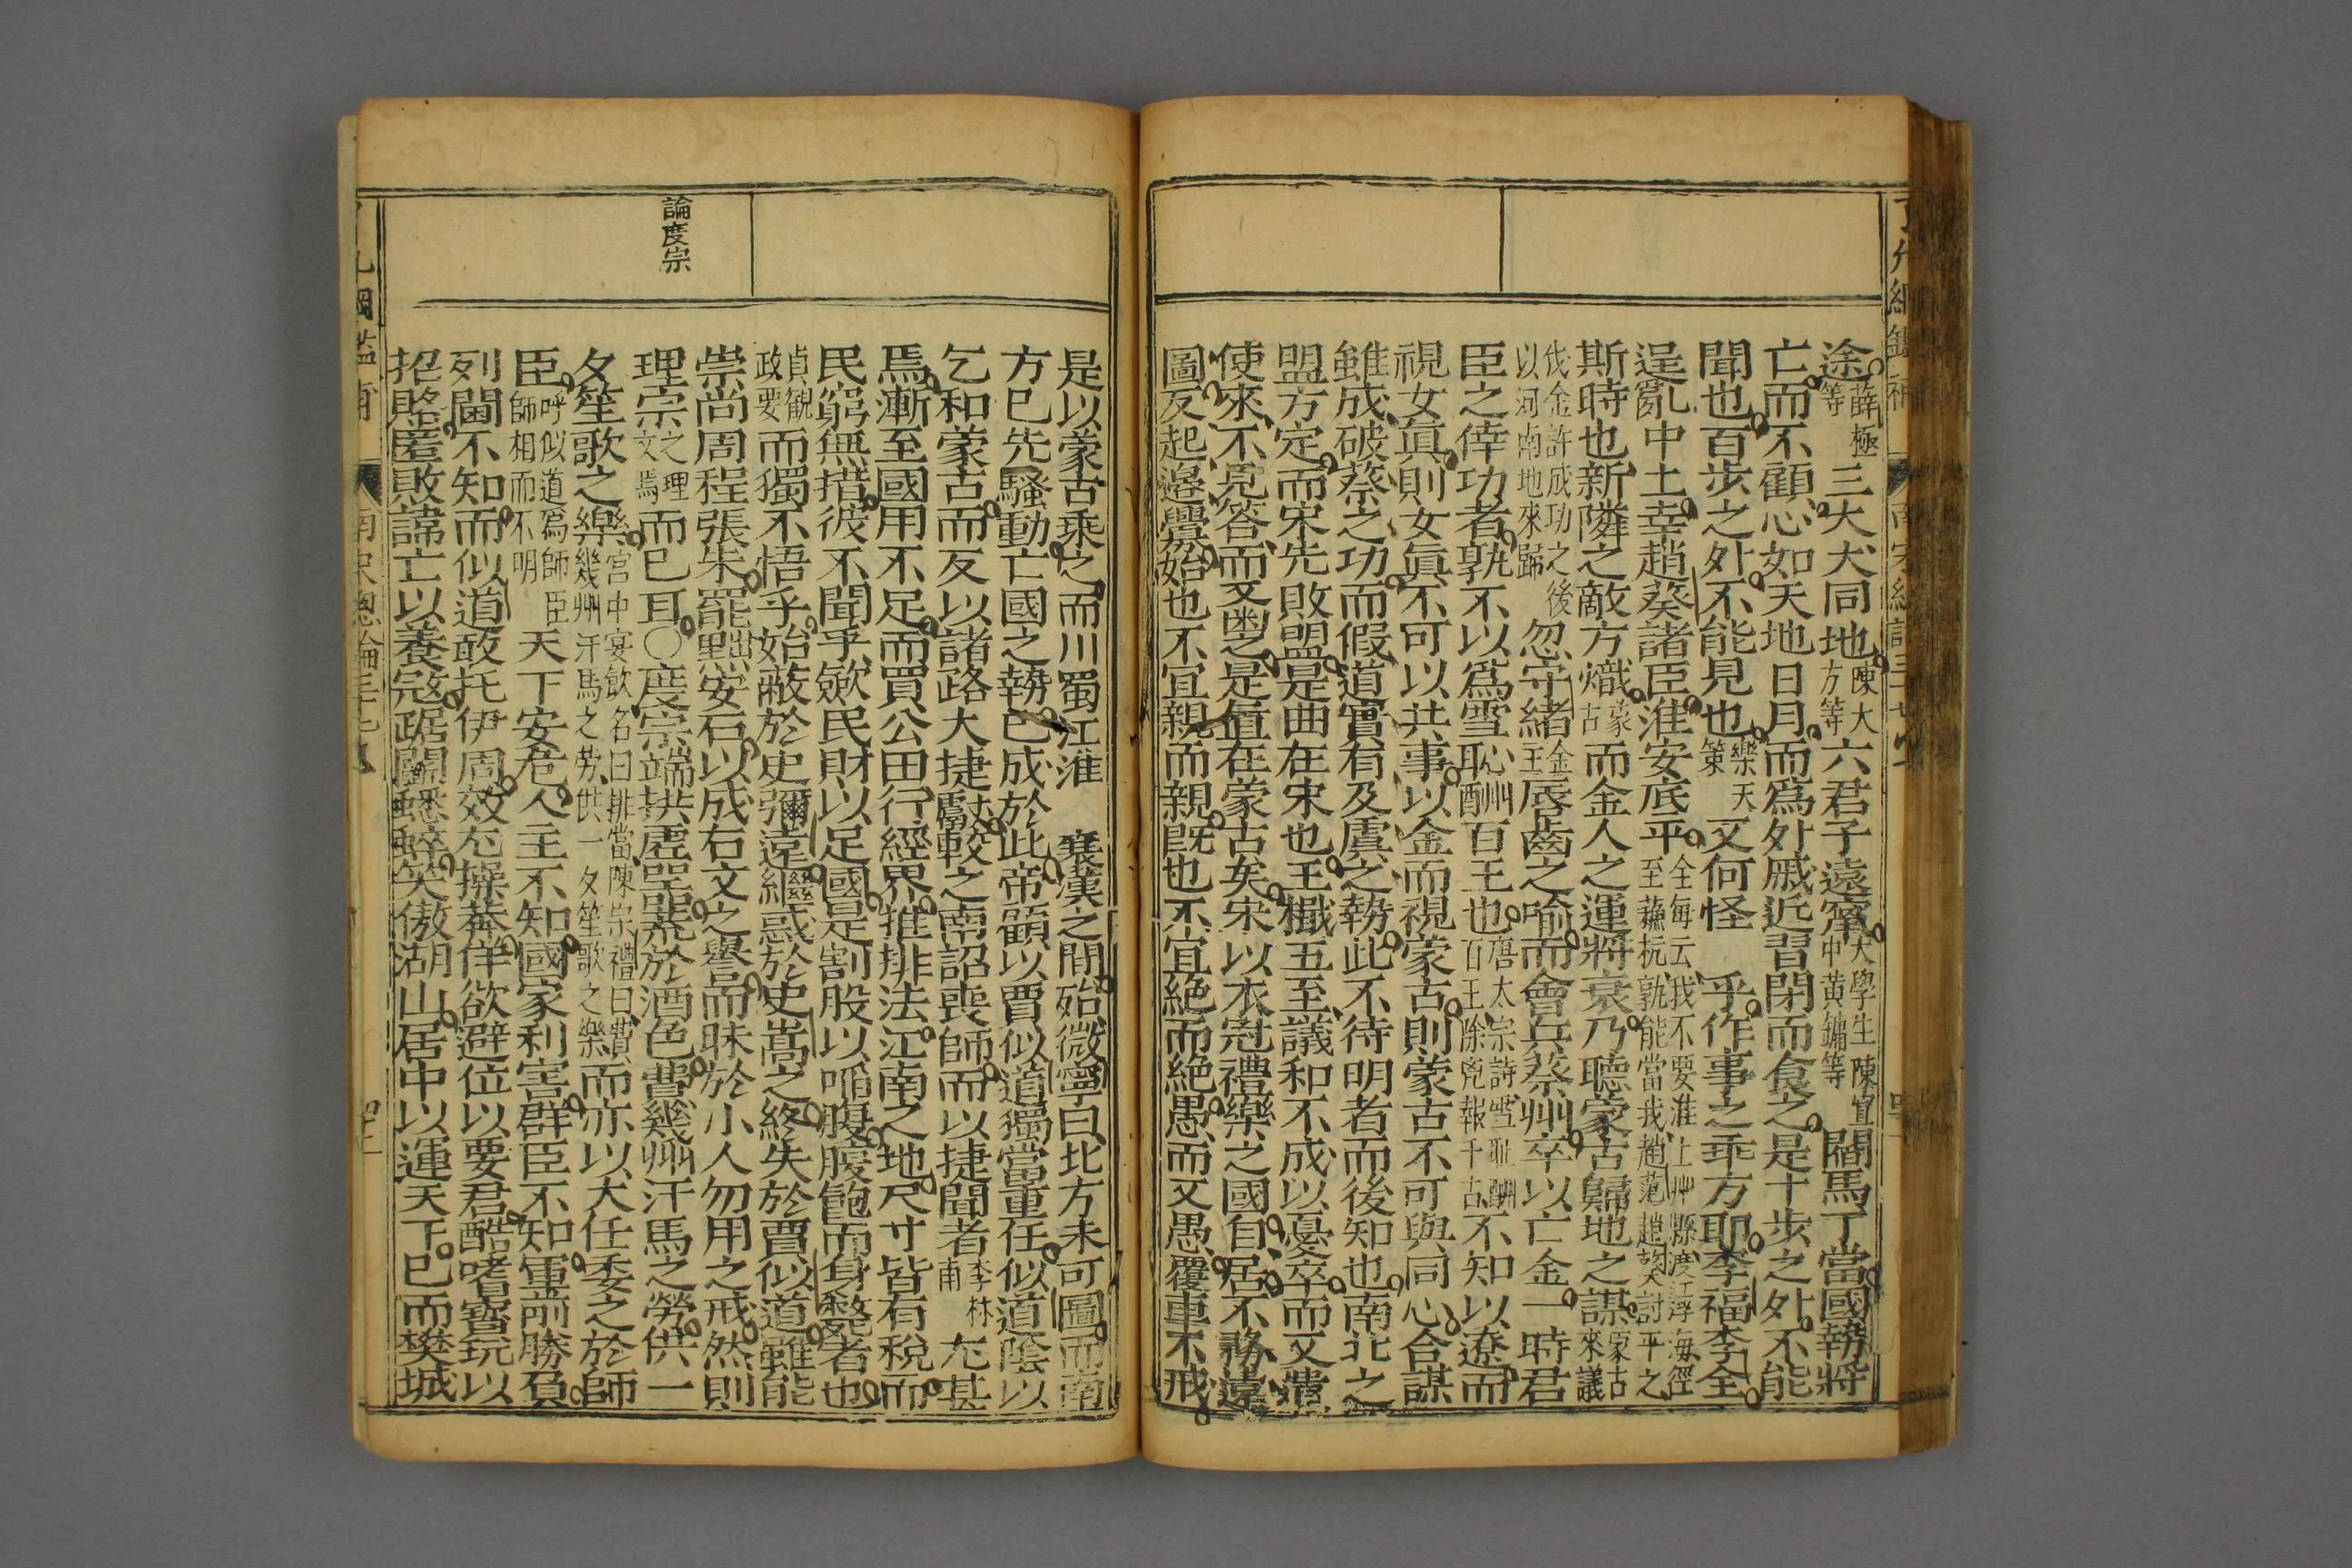 途薛極等三犬犬同地陳大方等六君子遠竄大學生陳宜中黄鏞等閻馬丁當國勢將
亡而不顧心如天地日月而爲外戚近習閉而食之是十步之外不能
聞也百步之外不能見也樂天策又何怪乎作事之乖方耶李福李全
逞亂中土幸趙葵諸臣淮安底平全每云我不要淮上州縣渡江浮海徑至蘇杭孰能當我趙范趙葵討平之
斯時也新隣之敵方熾蒙古而金人之運將衰乃聽蒙古歸地之謀蒙古來議
伐金許成功之後以河南地來歸忽守緒金主唇齒之喻而會兵蔡州卒以亡金一時君
臣之倖功者孰不以爲雪恥酬百王也唐太宗詩雪恥酬百王除兇報千古不知以遼而
視女眞則女眞不可以共事以金而視蒙古則蒙古不可與同心合謀
雖成破蔡之功而假道實有及虞之勢此不待明者而後知也南北之
盟方定而宋先敗盟是曲在宋也王檝五至議和不成以憂卒而又遣
使來不見答而又
是直在蒙古矣宋以衣冠禮樂之國自居不務遠
圖反起邊釁始也不宜親而親既也不宜絶而絶愚而又愚覆車不戒
論度宗
是以蒙古乘之而川蜀江淮襄漢之間殆微寧日北方未可圖而南
方已先騷動亡國之勢已成於此帝顧以賈似道獨當重任似道陰以
乞和蒙古而反以諸路大捷獻較之南詔喪師而以捷聞者李林甫尤甚
焉漸至國用不足而買公田行經界推排法江南之地尺寸皆有稅而
民窮無措彼不聞乎歛民財以足國是割股以啗腹腹飽而身斃者也
貞觀政要而獨不悟乎始蔽於史彌遠繼惑於史嵩之終失於賈似道雖能
崇尚周程張朱罷黜安石以成右文之譽而昧於小人勿用之戒然則
理宗之理文焉而已耳○度宗端拱虛器荒於酒色費幾州汗馬之勞供一
夕笙歌之樂宮中宴飲名曰排當陳宗禮曰費幾州汗馬之勞供一夕笙歌之樂而亦以大任委之於師
臣呼似道爲師臣師相而不明天下安危人主不知國家利害群臣不知軍前勝負
列閫不知而似道敢托伊周效尤操莽佯欲避位以要君酷嗜寶玩以
招賂匿敗諱亡以養寇踞鬪蟋蟀笑傲湖山居中以運天下已而樊城